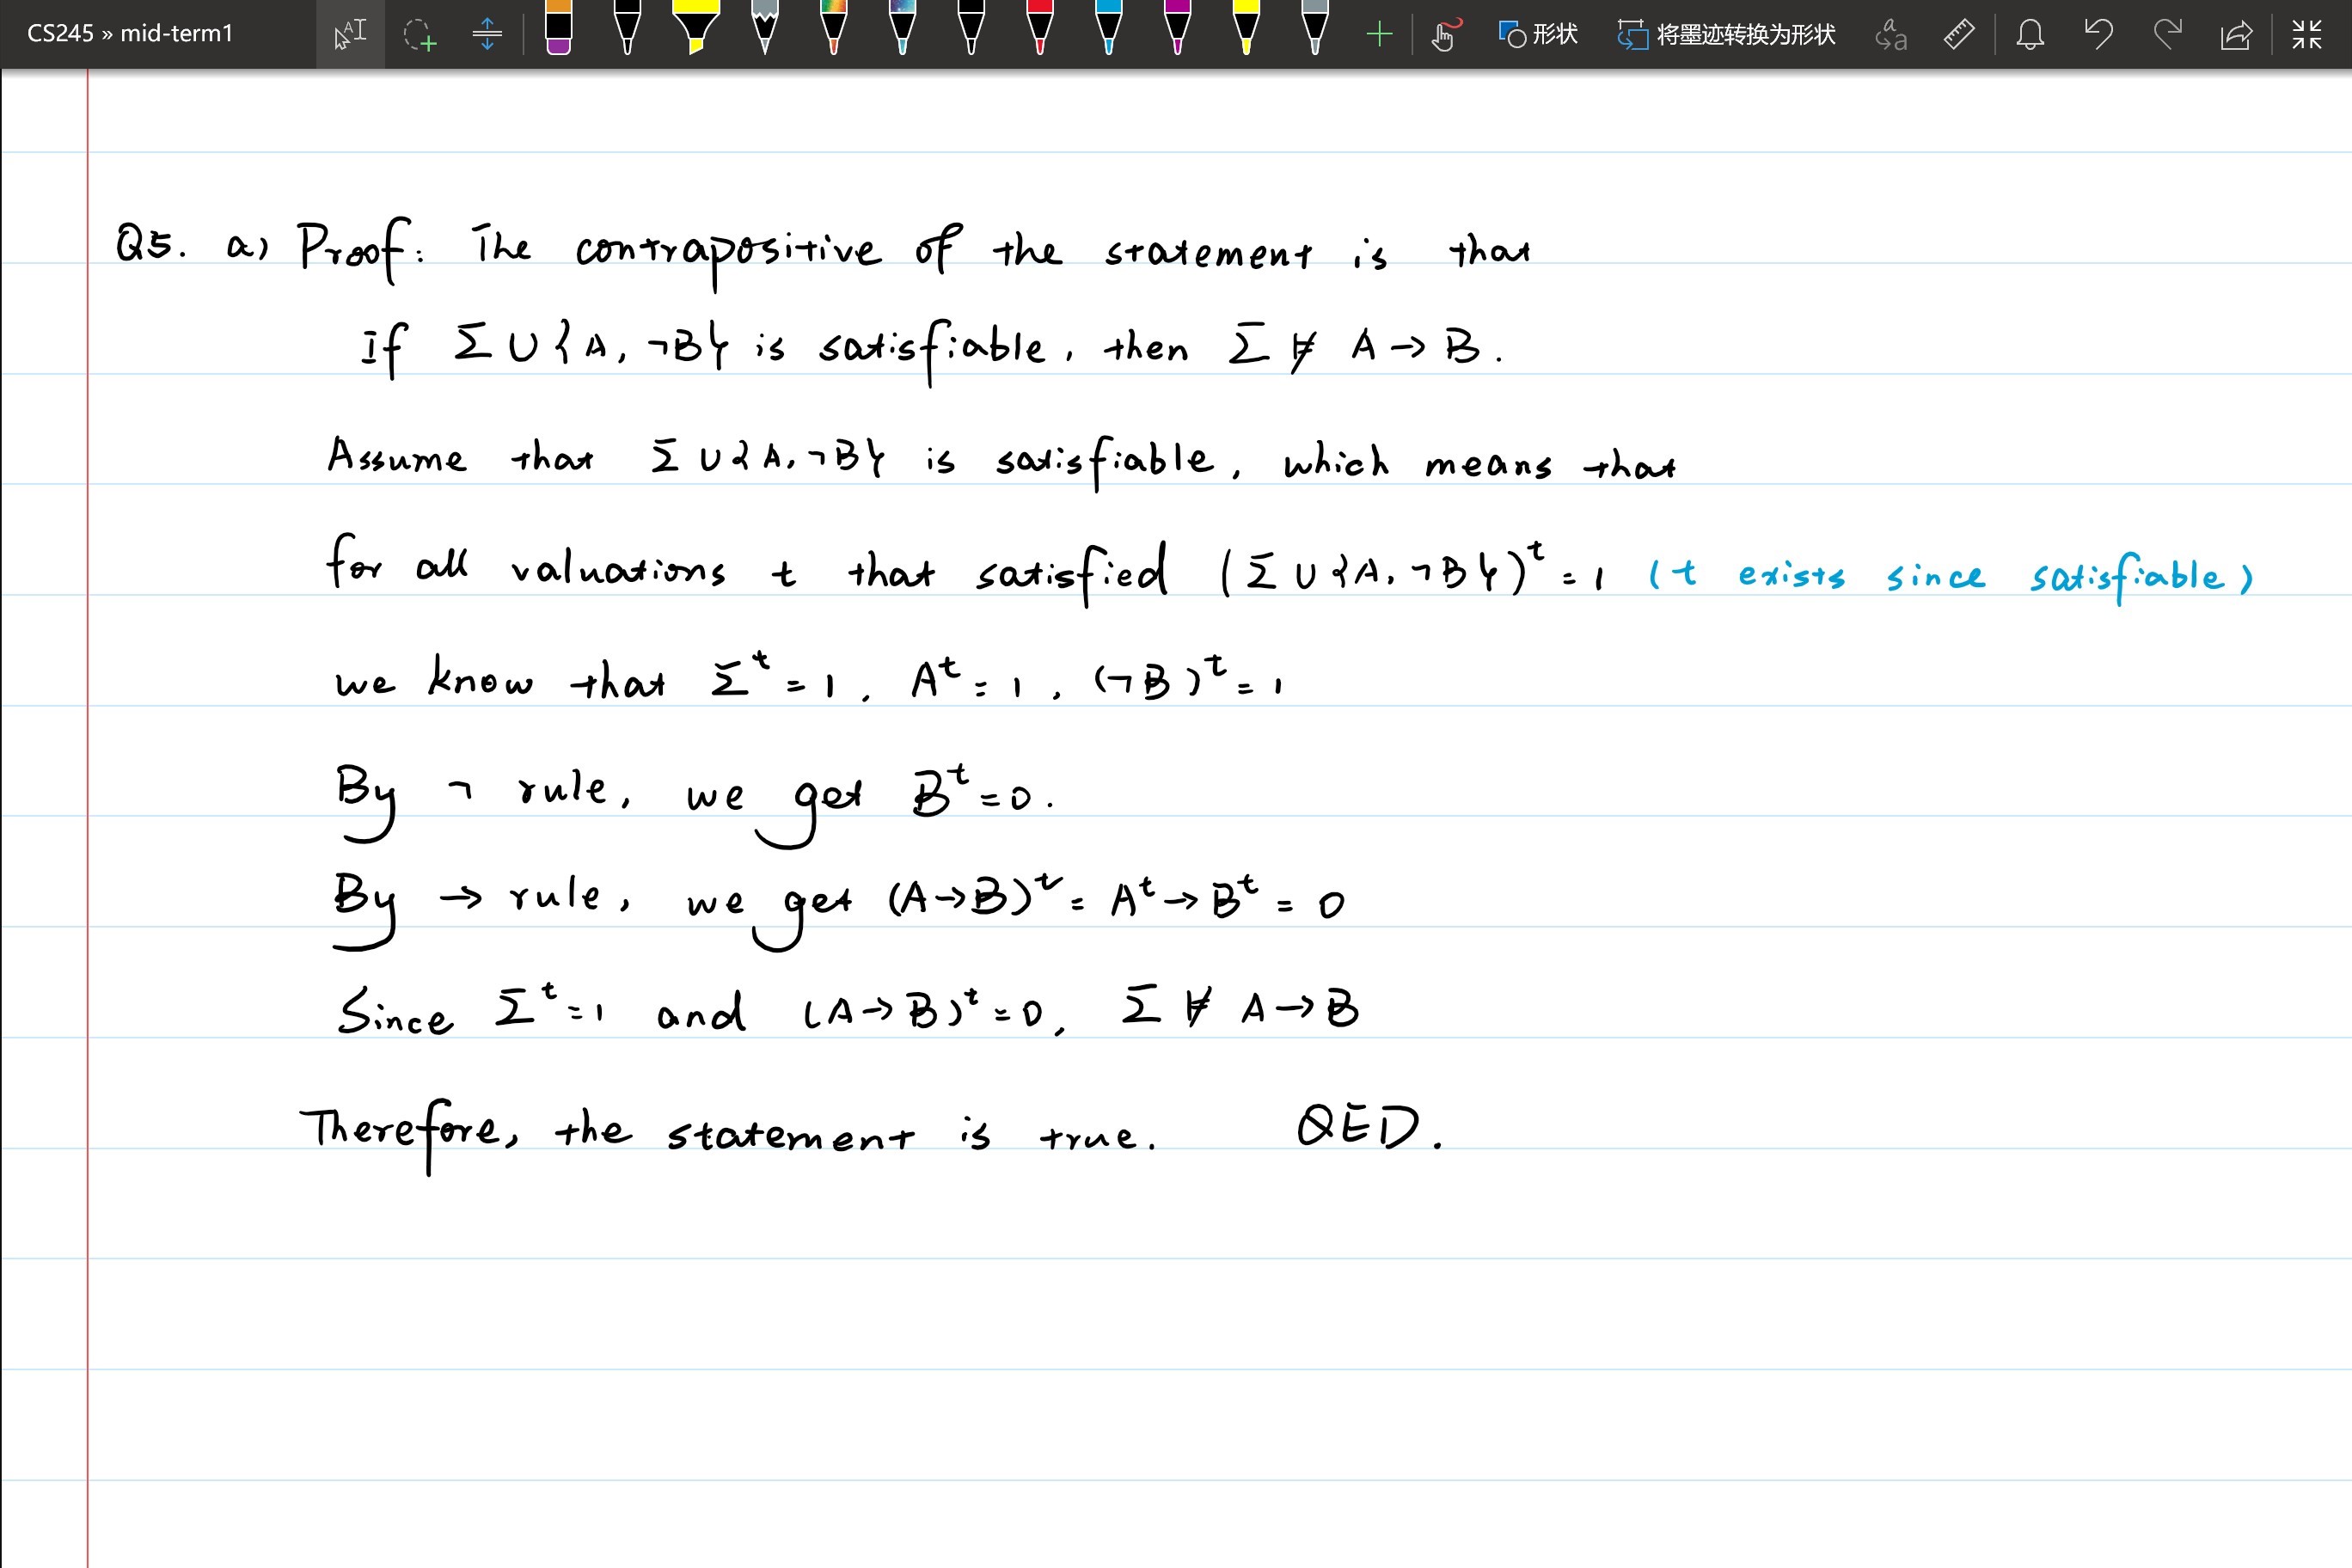 CS245 » mid-term1
形状
将墨迹转换为形状
Q5. a) Proof: The contrapositive of the statement is that
If Σ ∪ {A, ¬B} is satisfiable, then Σ ⊭ A → B.
Assume that Σ ∪ {A, ¬B} is satisfiable, which means that
for all valuations t that satisfied (Σ ∪ {A, ¬B})ᵗ = 1 (t exists since satisfiable)
we know that Σᵗ = 1, Aᵗ = 1, (¬B)ᵗ = 1
By ¬ rule, we get Bᵗ = 0.
By → rule, we get (A→B)ᵗ = Aᵗ → Bᵗ = 0
Since Σᵗ = 1 and (A→B)ᵗ = 0, Σ ⊭ A → B
Therefore, the statement is true. QED.